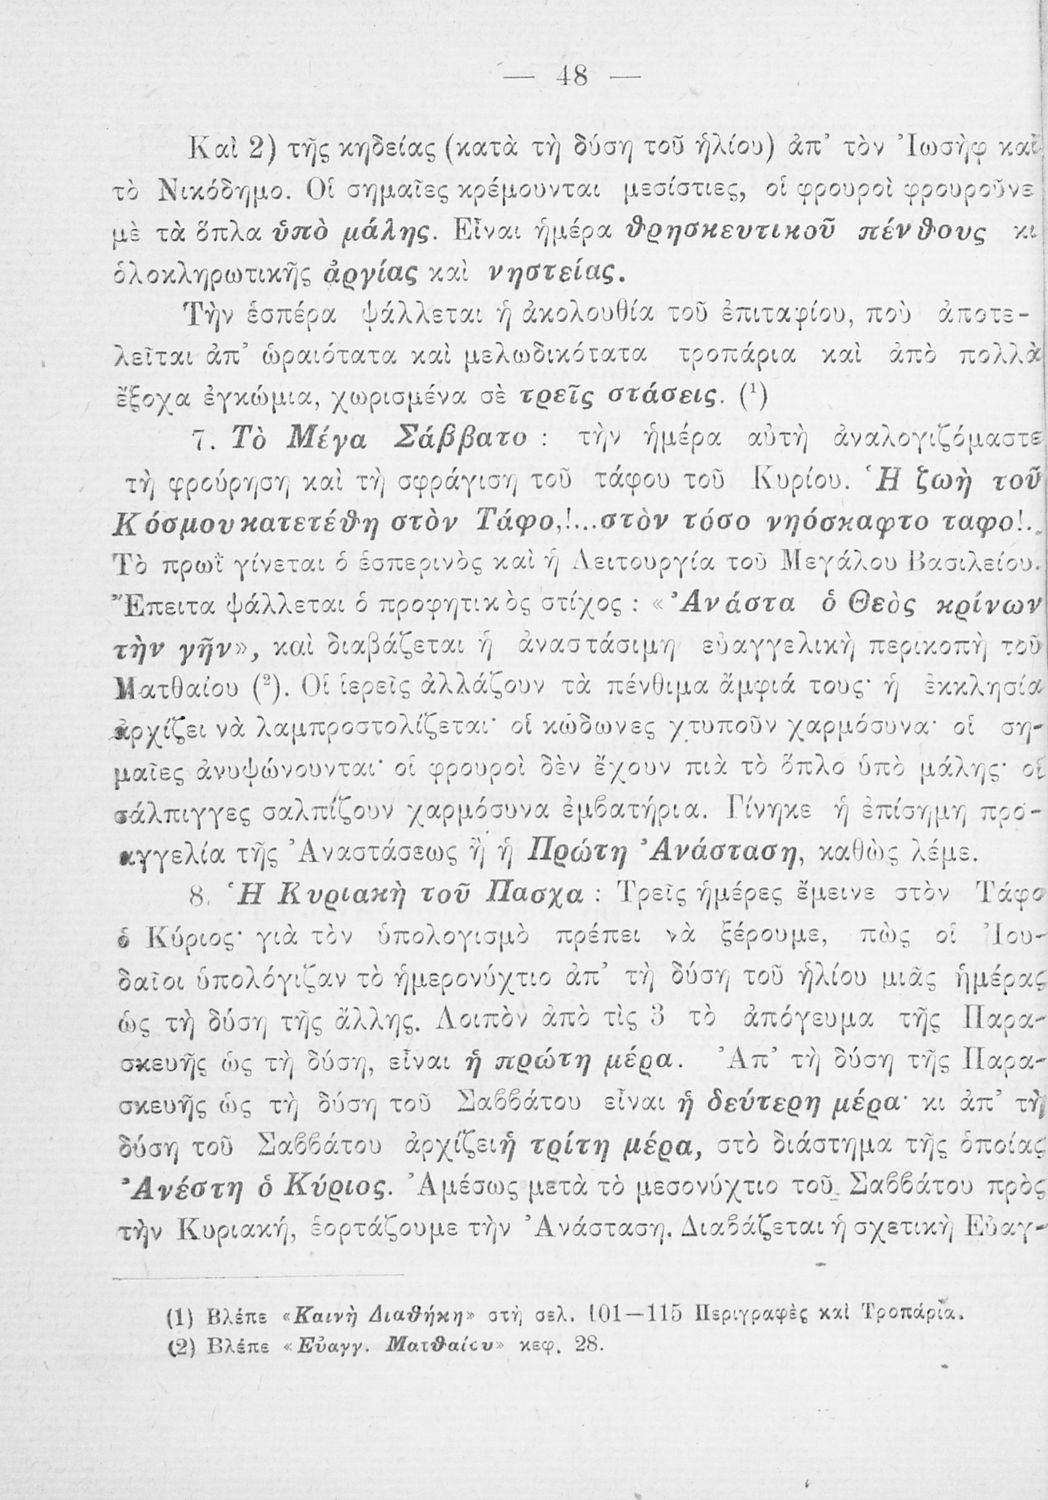 — 48 —
Καὶ 2) τῆς κηδείας (κατὰ τὴ δύση τοῦ ἡλίου) ἀπ' τὸν Ἰωσὴφ καὶ
τὸ Νικόδημο. Οἱ σημαῖες κρέμουνται μεσίστιες, οἱ φρουροὶ φρουροῦνε
μὲ τὰ ὅπλα ὑπὸ μάλης. Εἶναι ἡμέρα θρησκευτικοῦ πένθους κι
ὁλοκληρωτικῆς ἀργίας καὶ νηστείας.
Τὴν ἑσπέρα ψάλλεται ἡ ἀκολουθία τοῦ ἐπιταφίου, ποὺ ἀποτε-
λεῖται ἀπ' ὡραιότατα καὶ μελωδικότατα τροπάρια καὶ ἀπὸ πολλὰ
ἔξοχα ἐγκώμια, χωρισμένα σὲ τρεῖς στάσεις. (¹)
7. Τὸ Μέγα Σάββατο : τὴν ἡμέρα αὐτὴ ἀναλογιζόμαστε
τὴ φρούρηση καὶ τὴ σφράγιση τοῦ τάφου τοῦ Κυρίου. Ἡ ζωὴ τοῦ
Κόσμου κατετέθη στὸν Τάφο,!...στὸν τόσο νηόσκαφτο ταφο!..
Τὸ πρωῒ γίνεται ὁ ἑσπερινὸς καὶ ἡ Λειτουργία τοῦ Μεγάλου Βασιλείου.
Ἔπειτα ψάλλεται ὁ προφητικὸς στίχος : «Ἀνάστα ὁ Θεὸς κρίνων
τὴν γῆν», καὶ διαβάζεται ἡ ἀναστάσιμη εὐαγγελικὴ περικοπὴ τοῦ
Ματθαίου (²). Οἱ ἱερεῖς ἀλλάζουν τὰ πένθιμα ἄμφιά τους· ἡ ἐκκλησία
ἀρχίζει νὰ λαμπροστολίζεται· οἱ κώδωνες χτυποῦν χαρμόσυνα· οἱ ση-
μαῖες ἀνυψώνουνται· οἱ φρουροὶ δὲν ἔχουν πιὰ τὸ ὅπλο ὑπὸ μάλης· οἱ
σάλπιγγες σαλπίζουν χαρμόσυνα ἐμβατήρια. Γίνηκε ἡ ἐπίσημη προ-
αγγελία τῆς Ἀναστάσεως ἢ ἡ Πρώτη Ἀνάσταση, καθὼς λέμε.
8. Ἡ Κυριακὴ τοῦ Πασχα : Τρεῖς ἡμέρες ἔμεινε στὸν Τάφο
ὁ Κύριος· γιὰ τὸν ὑπολογισμὸ πρέπει νὰ ξέρουμε, πὼς οἱ Ἰου-
δαῖοι ὑπολόγιζαν τὸ ἡμερονύχτιο ἀπ' τὴ δύση τοῦ ἡλίου μιᾶς ἡμέρας
ὡς τὴ δύση τῆς ἄλλης. Λοιπὸν ἀπὸ τὶς 3 τὸ ἀπόγευμα τῆς Παρα-
σκευῆς ὡς τὴ δύση, εἶναι ἡ πρώτη μέρα. Ἀπ' τὴ δύση τῆς Παρα-
σκευῆς ὡς τὴ δύση τοῦ Σαββάτου εἶναι ἡ δεύτερη μέρα· κι ἀπ' τὴ
δύση τοῦ Σαββάτου ἀρχίζει ἡ τρίτη μέρα, στὸ διάστημα τῆς ὁποίας
Ἀνέστη ὁ Κύριος. Ἀμέσως μετὰ τὸ μεσονύχτιο τοῦ Σαββάτου πρὸς
τὴν Κυριακή, ἑορτάζουμε τὴν Ἀνάσταση. Διαβάζεται ἡ σχετικὴ Εὐαγ-
(1) Βλέπε «Καινὴ Διαθήκη» στὴ σελ. 101—115 Περιγραφὲς καὶ Τροπάρια.
(2) Βλέπε «Εὐαγγ. Ματθαίου» κεφ. 28.